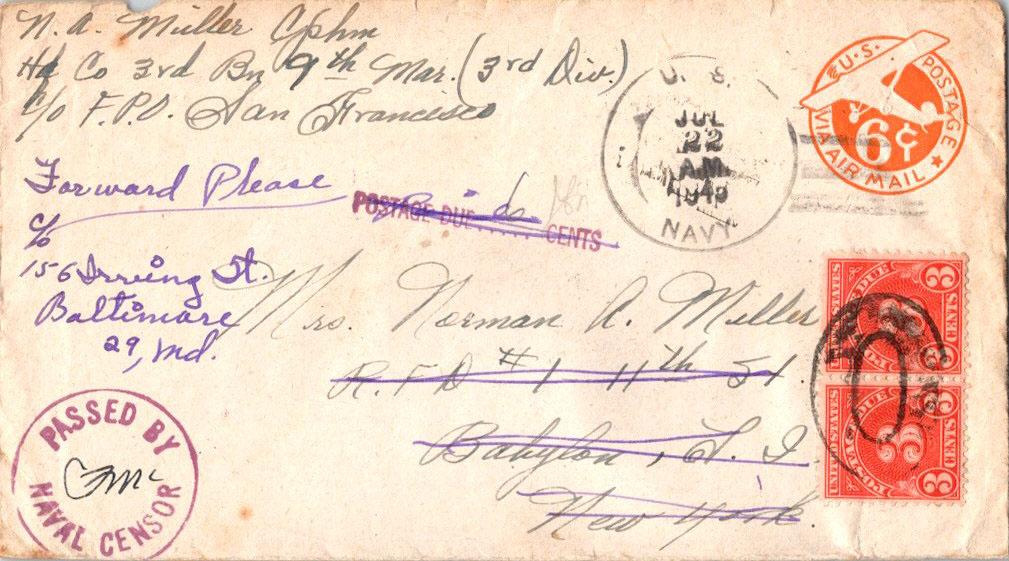 N. A. Miller Cphm
Hq Co 3rd Bn 9th Mar. (3rd Div.)
c/o F.P.O. San Francisco
U. S.
JUL
22
A.M.
194
NAVY
U.S. POSTAGE
6¢
VIA AIR MAIL
Forward Please
c/o
156 Irving St.
Baltimore
29, Md.
POSTAGE DUE CENTS
Mrs. Norman A. Miller
R.F.D #1 11th St.
Babylon, L. I.
New York.
UNITED STATES
POSTAGE DUE
3 CENTS 3
UNITED STATES
POSTAGE DUE
3 CENTS 3
PASSED BY
NAVAL CENSOR